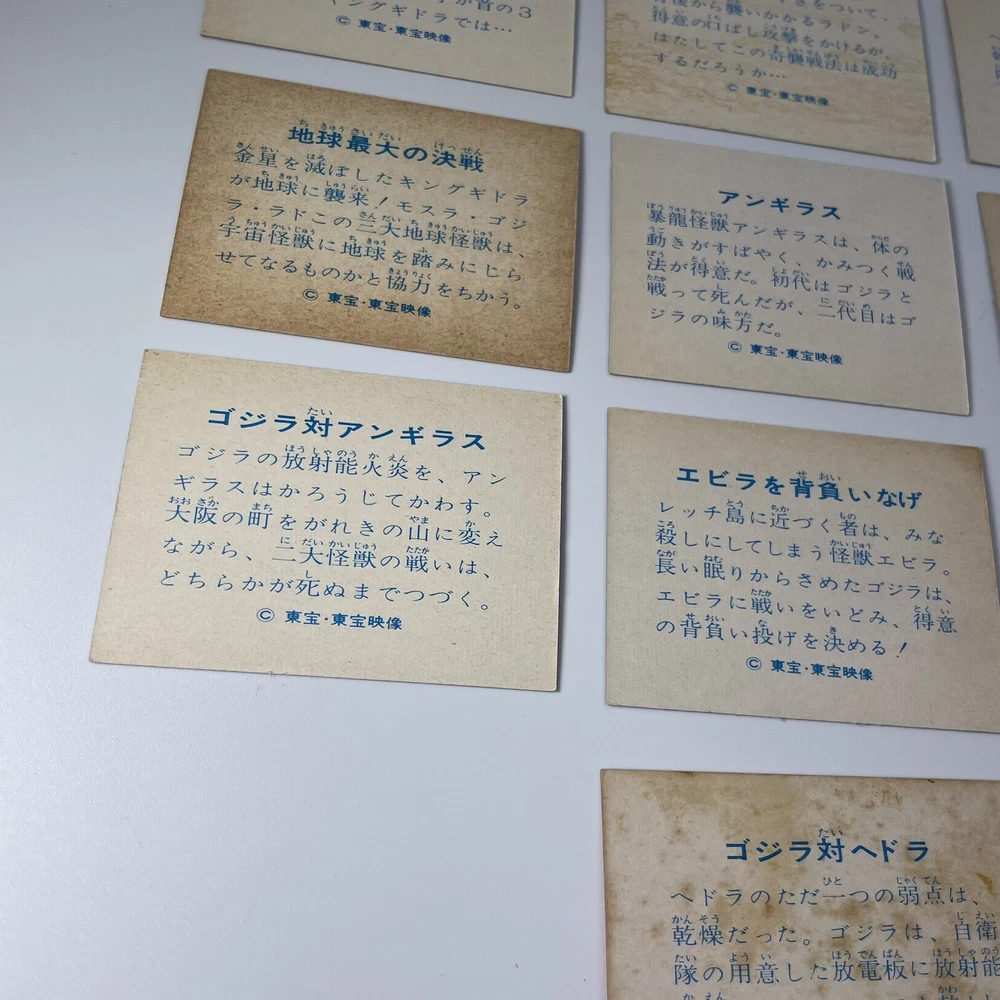 が音の3
キングギドラでは…
© 東宝・東宝映像
をついて、
背後から襲いかかるラドン。
得意の口ばし攻撃をかけるが、
はたしてこの奇襲戦法は成功
するだろうか…
© 東宝・東宝映像
地球最大の決戦
金星を滅ぼしたキングギドラ
が地球に襲来！モスラ・ゴジ
ラ・ラドンこの三大地球怪獣は、
宇宙怪獣に地球を踏みにじら
せてなるものかと協力をちかう。
© 東宝・東宝映像
アンギラス
暴龍怪獣アンギラスは、体の
動きがすばやく、かみつく戦
法が得意だ。初代はゴジラと
戦って死んだが、二代目はゴ
ジラの味方だ。
© 東宝・東宝映像
ゴジラ対アンギラス
ゴジラの放射能火炎を、アン
ギラスはかろうじてかわす。
大阪の町をがれきの山に変え
ながら、二大怪獣の戦いは、
どちらかが死ぬまでつづく。
© 東宝・東宝映像
エビラを背負いなげ
レッチ島に近づく者は、みな
殺しにしてしまう怪獣エビラ。
長い眠りからさめたゴジラは、
エビラに戦いをいどみ、得意
の背負い投げを決める！
© 東宝・東宝映像
ゴジラ対ヘドラ
ヘドラのただ一つの弱点は、
乾燥だった。ゴジラは、自衛
隊の用意した放電板に放射能